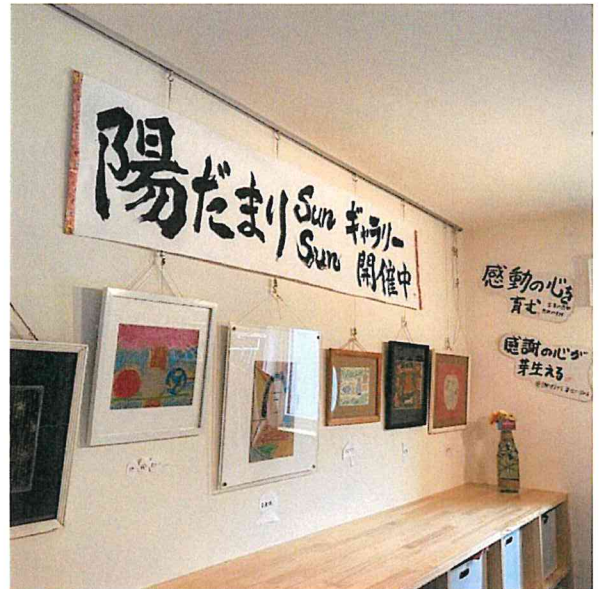 陽だまり
Sun
Sun
ギャラリー
開催中
感動の心を
育む
感謝の心が
芽生える